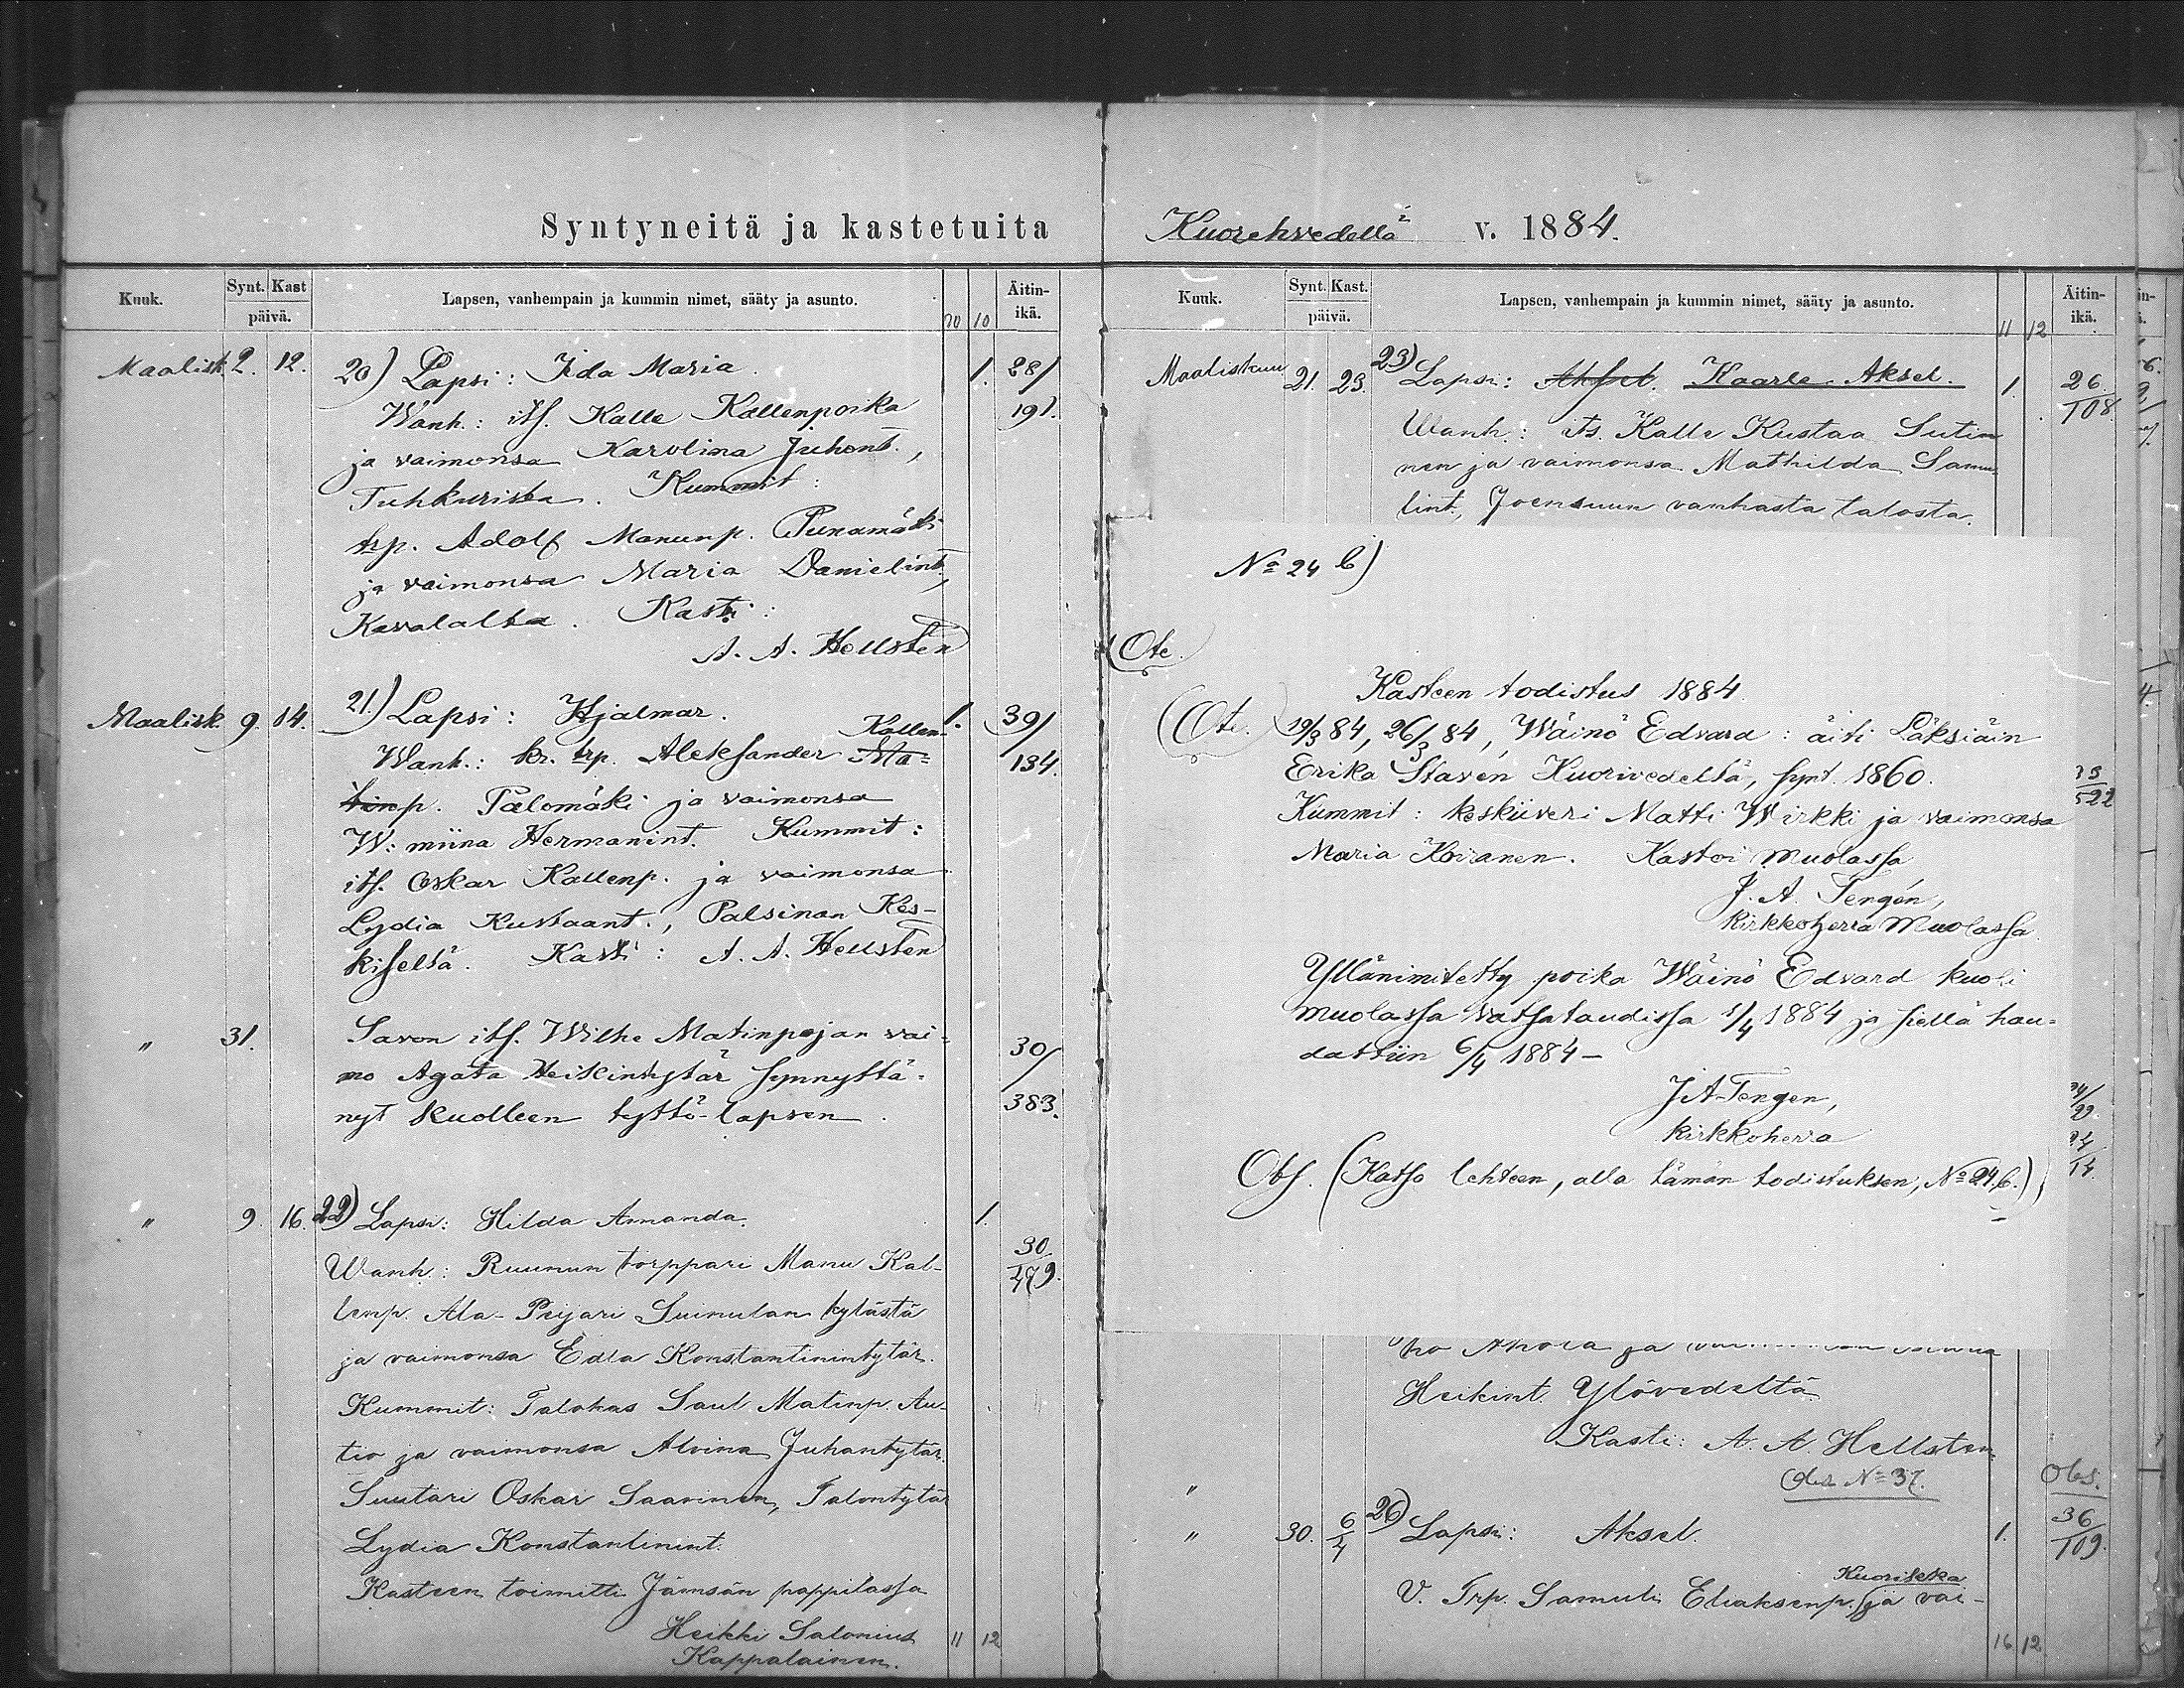 Syntyneitä ja kastetuita
Kuuk. Synt. Kast päivä. Lapsen, vanhempain ja kummin nimet, sääty ja asunto. 10 10 Äitin-ikä.
Maalisk. 2. 12. 20) Lapsi: Iida Maria. 1. 28/
Wanh.: itf. Kalle Kallenpoika 191.
ja vaimonsa Karolina Juhont.,
Tuhkurista. Kummit:
trp. Adolf Manunp. Punamäki
ja vaimonsa Maria Danielint.,
Kavalalta. Kasti:
A. A. Hellsten
Maalisk. 9. 14. 21.) Lapsi: Hjalmar. 1. 39/
Kallen-
Wanh.: kr. trp. Aleksander Ma= 134.
tinp. Palomäki ja vaimonsa
W:miina Hermanint. Kummit:
itf. Oskar Kallenp. ja vaimonsa
Lydia Kustaant., Palsinan Kes-
kiseltä. Kasti: A. A. Hellsten
" 31. Savon itf. Wilhe Matinpojan vai-
30/
mo Agata Heikintytär synnyttä-
nyt kuolleen tyttö-lapsen. 383.
" 9. 16. 22) Lapsi: Hilda Amanda. 1.
30
Wanh.: Ruunun torppari Manu Kal- 479.
lenp. Ala-Peijari Suinulan kylästä
ja vaimonsa Edla Konstantinintytär.
Kummit: Talokas Saul Matinp. Au-
tio ja vaimonsa Alvina Juhantytär.
Suutari Oskar Saarinen, Talontytär
Lydia Konstantinint.
Kasteen toimitti Jämsän pappilassa
Heikki Salonius 11 12
Kappalainen.
Kuorehvedellä v. 1884.
Kuuk. Synt. Kast. päivä. Lapsen, vanhempain ja kummin nimet, sääty ja asunto. 11 12 Äitin-ikä.
Maaliskuu 21. 23. 23) Lapsi: Aksel. Kaarle Aksel. 1. 26.
108
Wanh.: Ts. Kalle Kustaa Sutin
nen ja vaimonsa Mathilda Samu-
lint., Joensuun vanhasta talosta.
No 24 b)
(Ote.
Kasteen todistus 1884.
(Ote.) 19/3 84, 26/3 84, Wäinö Edvard: äiti Läksiäin
Erika Stavén Kuorivedeltä, synt. 1860. 522
Kummit: keskiiveri Matti Wirkki ja vaimonsa
Maria Koiranen. Kastoi Muolassa
J. A. Tengén,
Kirkkoherra Muolassa.
Yllänimitetty poika Wäinö Edvard kuoli
Muolassa vatsataudissa 1/4 1884 ja siellä hau-
dattiin 6/4 1884 –
J A Tengen,
kirkkoherra
Obs. (Katso lehteen, alla tämän todistuksen, No 24.b.)
14.
ja
Heikint. Ylövedeltä
Kasti: A. A. Hellsten
" Obs No 37. Obs.
" 30. 6/4 26) Lapsi: Aksel. 1. 36
109.
Kuoriseka
V. Trp. Samuli Eliaksenp. ja vai-
16 12